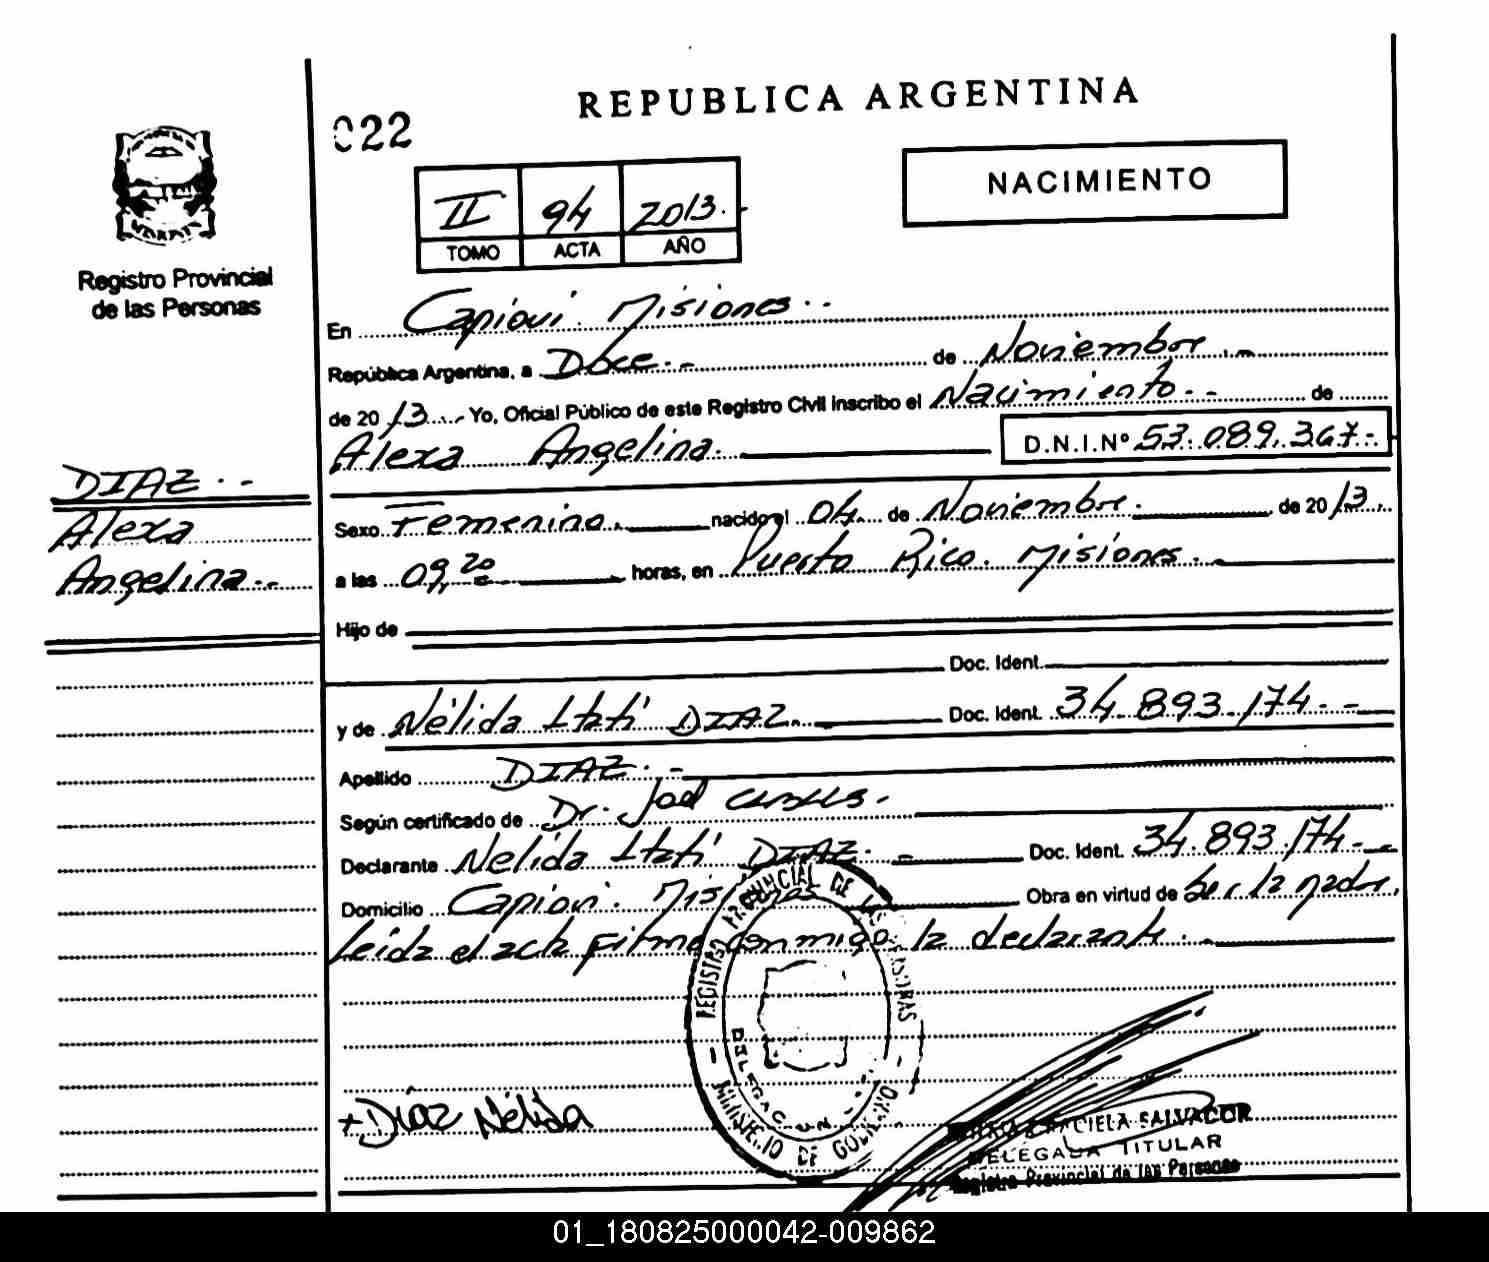 REPUBLICA ARGENTINA
022
NACIMIENTO
II 94 2013.-
TOMO ACTA AÑO
Registro Provincial
de las Personas
En Capiovi. Misiones.-
República Argentina, a Doce.- de Noviembre.-
de 2013.- Yo, Oficial Público de este Registro Civil inscribo el Nacimiento.- de
Alexa Angelina. D.N.I.Nº 53.089.367.-
DIAZ.-
Alexa
Angelina.-
Sexo Femenino. nacido el 04. de Noviembre. de 2013.
a las 09,20 horas, en Puerto Rico. Misiones.-
Hijo de
Doc. Ident.
y de Nélida Itatí DIAZ.- Doc. Ident. 34.893.174.-
Apellido DIAZ.-
Según certificado de Dr. Joel
Declarante Nelida Itatí DIAZ.- Doc. Ident. 34.893.174.-
Domicilio Capiovi. Misiones Obra en virtud de Ser la madre.
Leída el acta firma conmigo la declarante.-
REGISTRO PROVINCIAL DE LAS PERSONAS
MINISTERIO DE GOBIERNO
+ Díaz Nélida
GRACIELA SALVADOR
DELEGADA TITULAR
Registro Provincial de las Personas
01_180825000042-009862